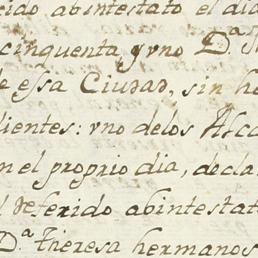 cido abintestato el dia
cinquenta y vno D.ª
de essa Ciudad, sin he
dientes: vno delos Alca
en el proprio dia, decla
l referido abintestat
D.ª Theresa hermanos